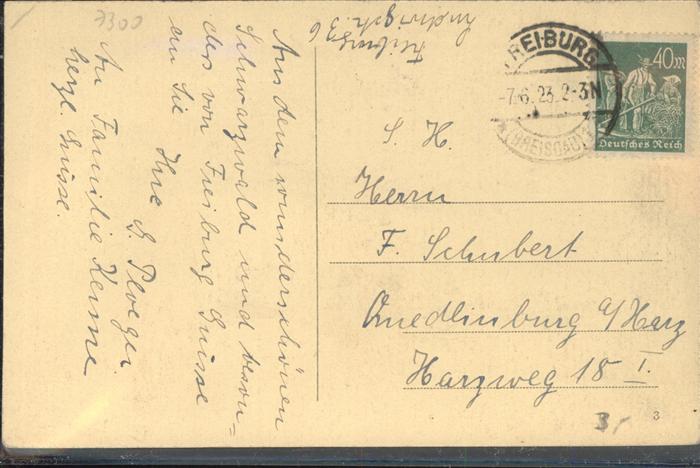 7300
Aus dem wunderschönen
Schwarzwald und beson=
ders von Freiburg Grüsse
an Sie
Ihre
G. Ploeger
An Familie Keune
herzl. Grüsse.
Freiburg
36
FREIBURG
-7.6.23.2-3N
(BREISGAU)
40M
Deutsches Reich
S. H.
Herrn
F. Schubert
Quedlinburg a/Harz
Harzweg 18 I.
3